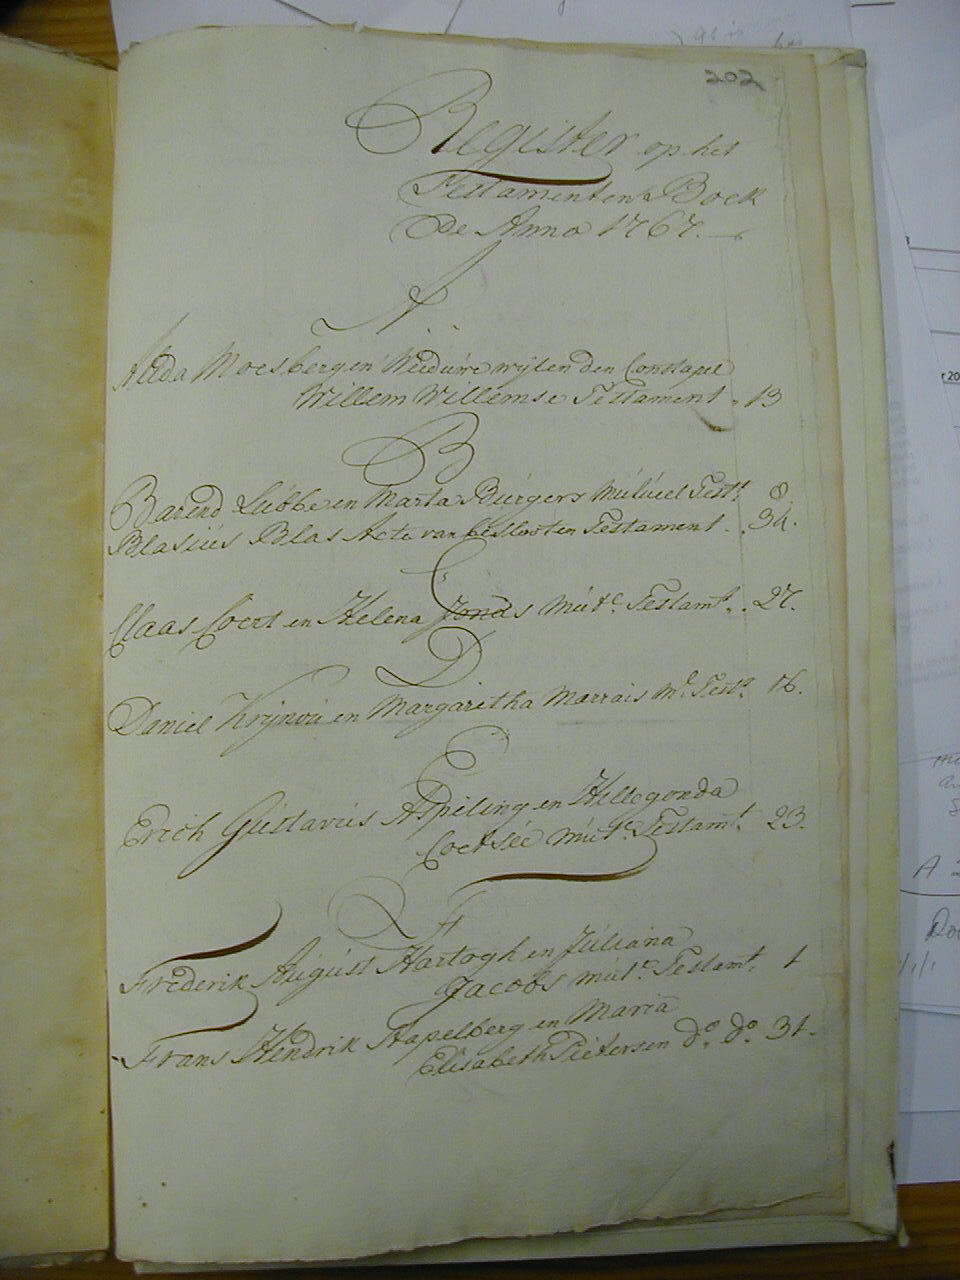 202
Register op het
Testamenten Boek
de Anno 1767.
A..
Alida Moesbergen Weduwe wijlen den Constapel
Willem Willemse Testament . 13
B
Barend Lubbe en Marta Burgers Mutueel Testt. 8.
Blasius Blas Acte van besloten Testament . . 34.
C
Claas Coert en Helena Jonas mute. Testamt. . 27.
D
Daniel Krijnau en Margaritha Marrais Me. Testt. 16.
E
Erich Gustavus Aspeling en Hillegonda
Coetseé mute. Testamt. 23.
F
Frederik August Hartogh en Juliana
Jacobs mute. Testamt. 1
Frans Hendrik Stapelberg en Maria
Elisabeth Pietersen do. do. 31.